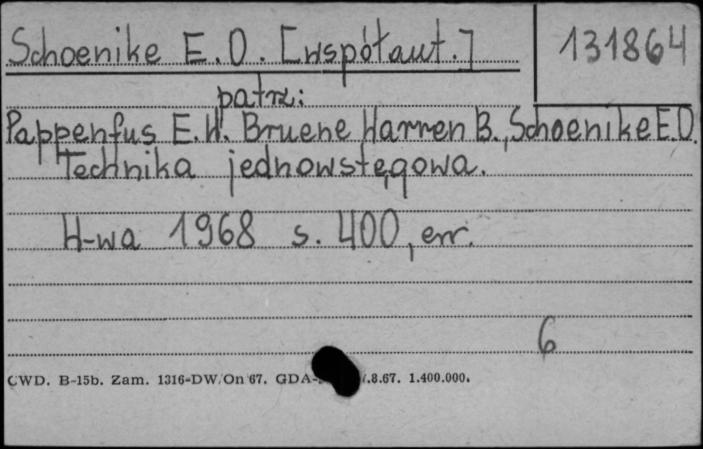 Schoenike E. O. [współaut.]
131864
patrz:
Pappenfus E. W. Bruene Warren B., Schoenike E.O.
Technika jednowstęgowa.
W-wa 1968 s. 400, err.
6
CWD. B-15b. Zam. 1316-DW/On/67. GDA- .8.67. 1.400.000.